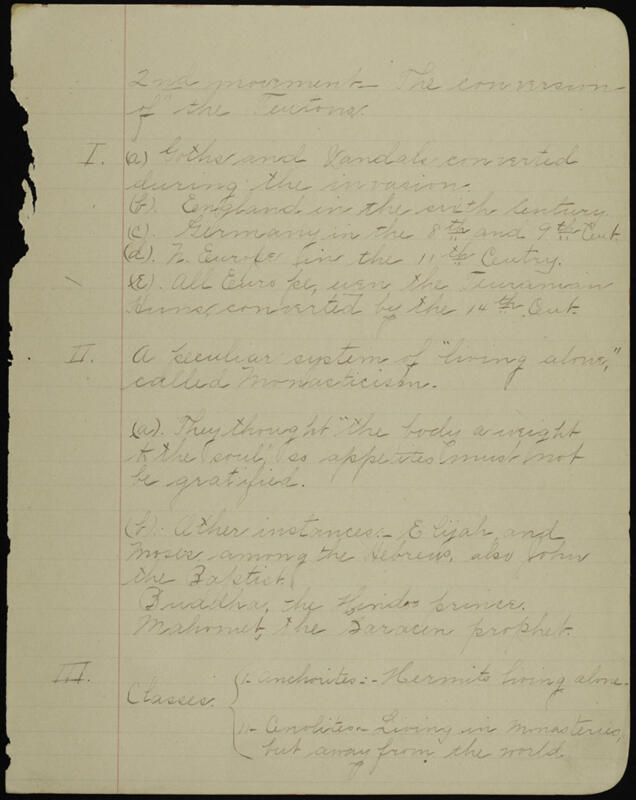 2nd movement - The conversion
of the Teutons.
I. (a) Goths and Vandals converted
during the invasion.
(b). England in the sixth Century
(c). Germany in the 8th and 9th Cent.
(d). N. Europe in the 11th Centry.
(E). All Europe, even the Teuranian
Huns, converted by the 14th Cent.
II. A peculiar system of "living alone,"
called Monasticism.
(a). They thought "the body a weight
to the soul," so appetites must not
be gratified.
(b). Other instances:- Elijah and
Moses among the Hebrews, also John
the Baptist.
Buddha, the Hindoo prince.
Mahomet, the Saracen prophet.
III. Classes. I- Anchorites:- Hermits living alone.
II- Cenolites- Living in Monasteries,
but away from the world.